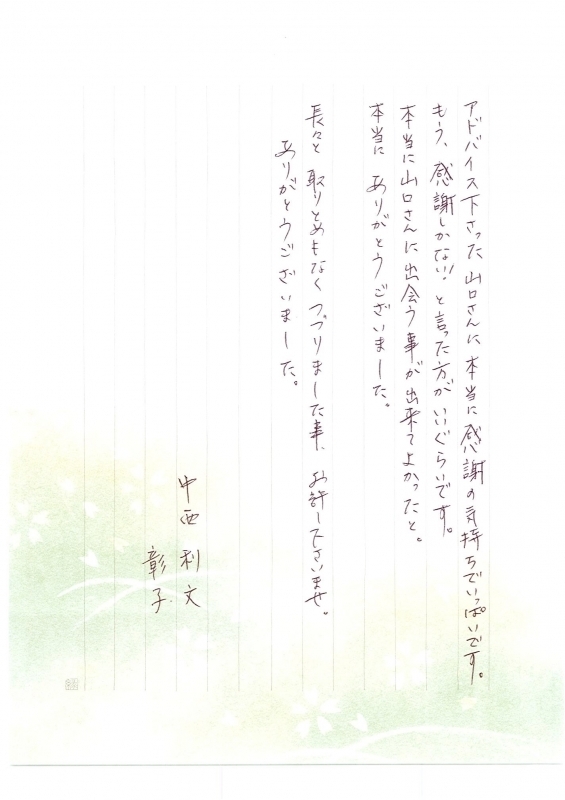 アドバイス下さった山口さんに本当に感謝の気持ちでいっぱいです。
もう、感謝しかない!と言った方がいいぐらいです。
本当に山口さんに出会う事が出来てよかったと。
本当に ありがとうございました。
長々と 取りとめもなくつづりました事、お許し下さいませ。
ありがとうございました。
中西 利文
彰子